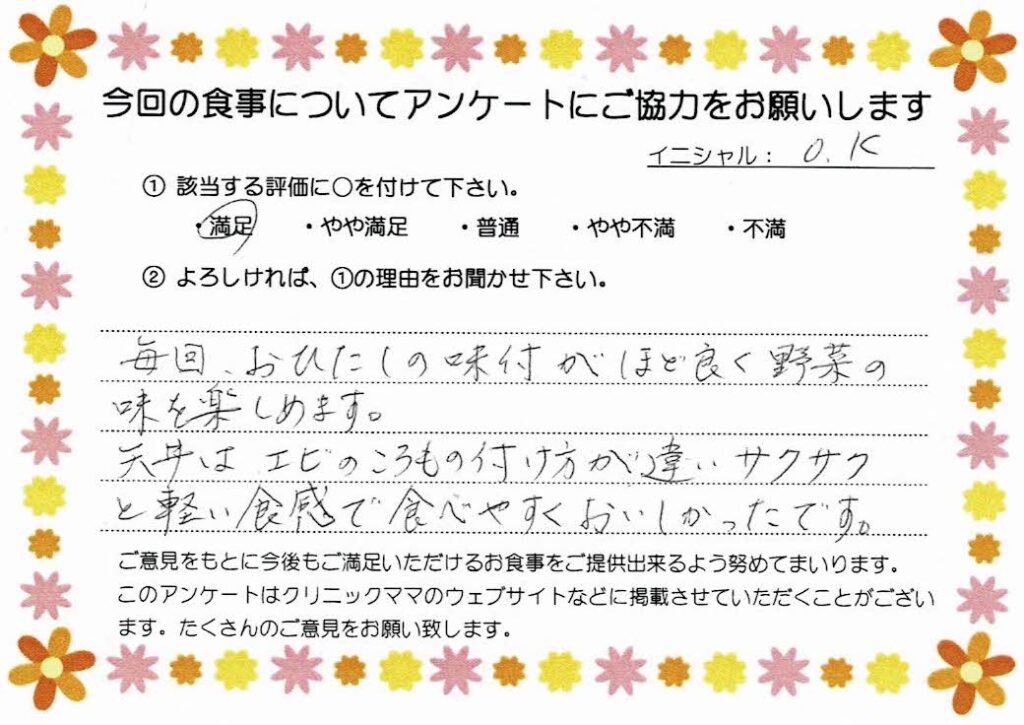 今回の食事についてアンケートにご協力をお願いします
イニシャル： O.K
① 該当する評価に○を付けて下さい。
・満足 ・やや満足 ・普通 ・やや不満 ・不満
② よろしければ、①の理由をお聞かせ下さい。
毎回、おひたしの味付がほど良く野菜の
味を楽しめます。
天丼はエビのころもの付け方が違いサクサク
と軽い食感で食べやすくおいしかったです。
ご意見をもとに今後もご満足いただけるお食事をご提供出来るよう努めてまいります。
このアンケートはクリニックママのウェブサイトなどに掲載させていただくことがござい
ます。たくさんのご意見をお願い致します。